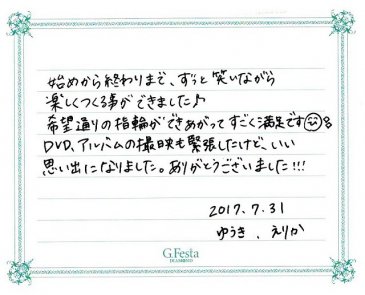 始めから終わりまで、ずっと笑いながら
楽しくつくる事ができました♪
希望通りの指輪ができあがってすごく満足です
DVD、アルバムの撮映も緊張したけど、いい
思い出になりました。ありがとうございました!!!
2017.7.31
ゆうき、えりか
G.Festa